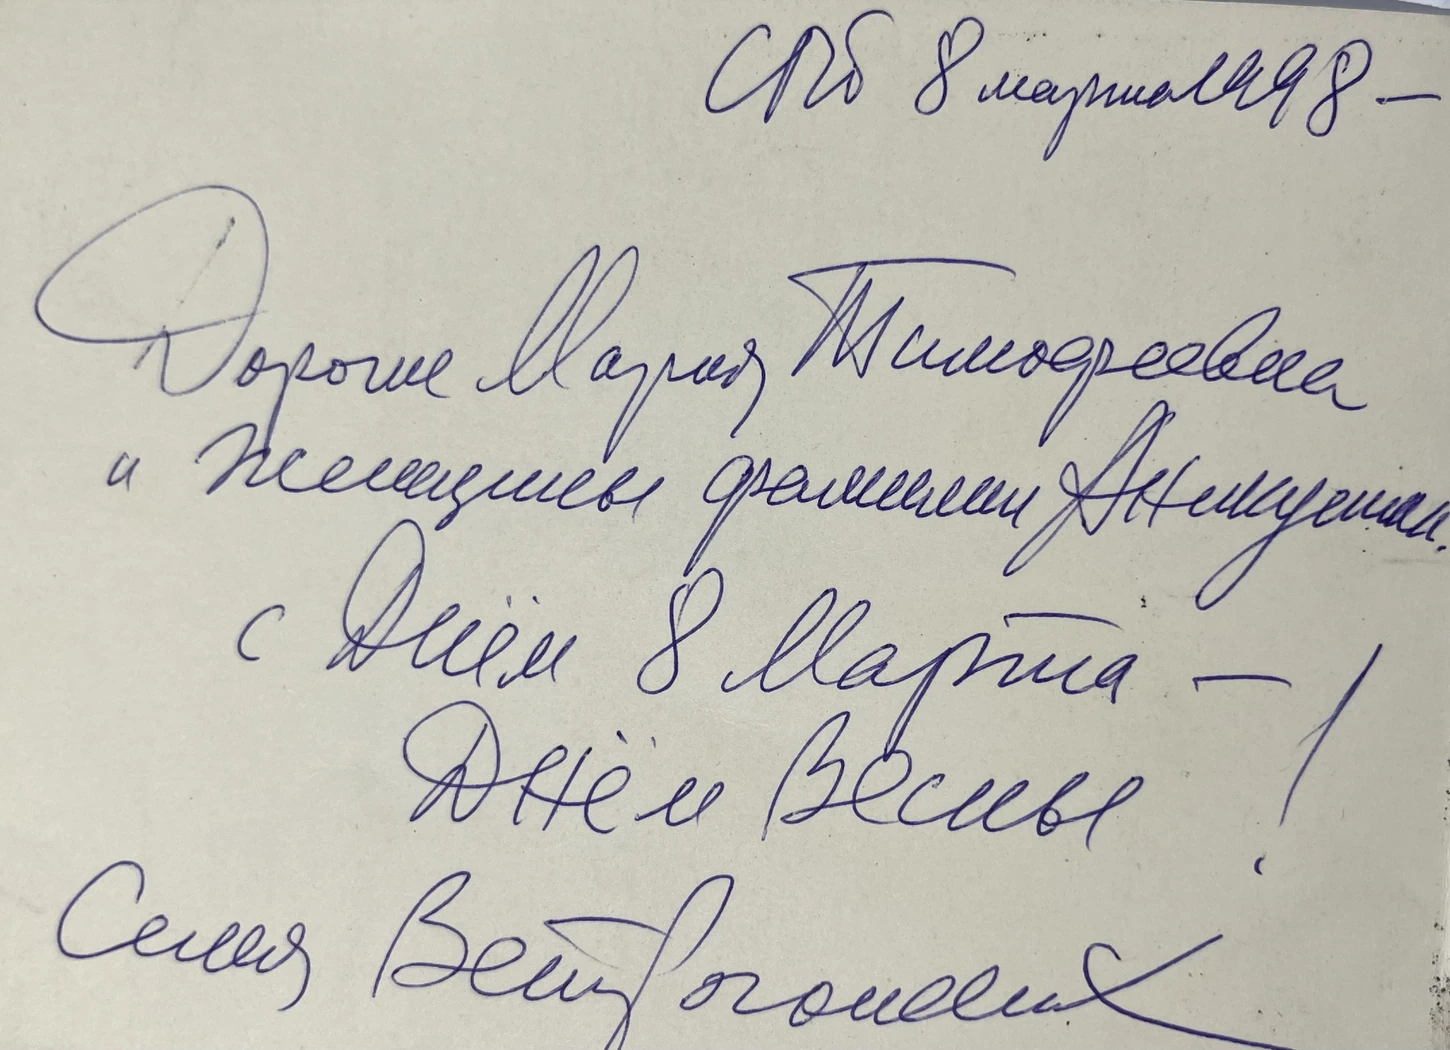 СПб 8 марта 1998 —
Дорогие Мария Тимофеевна
и женщины фамилии Аникушин.
с Днём 8 Марта —
Днём Весны!
Семья Ветрогонских